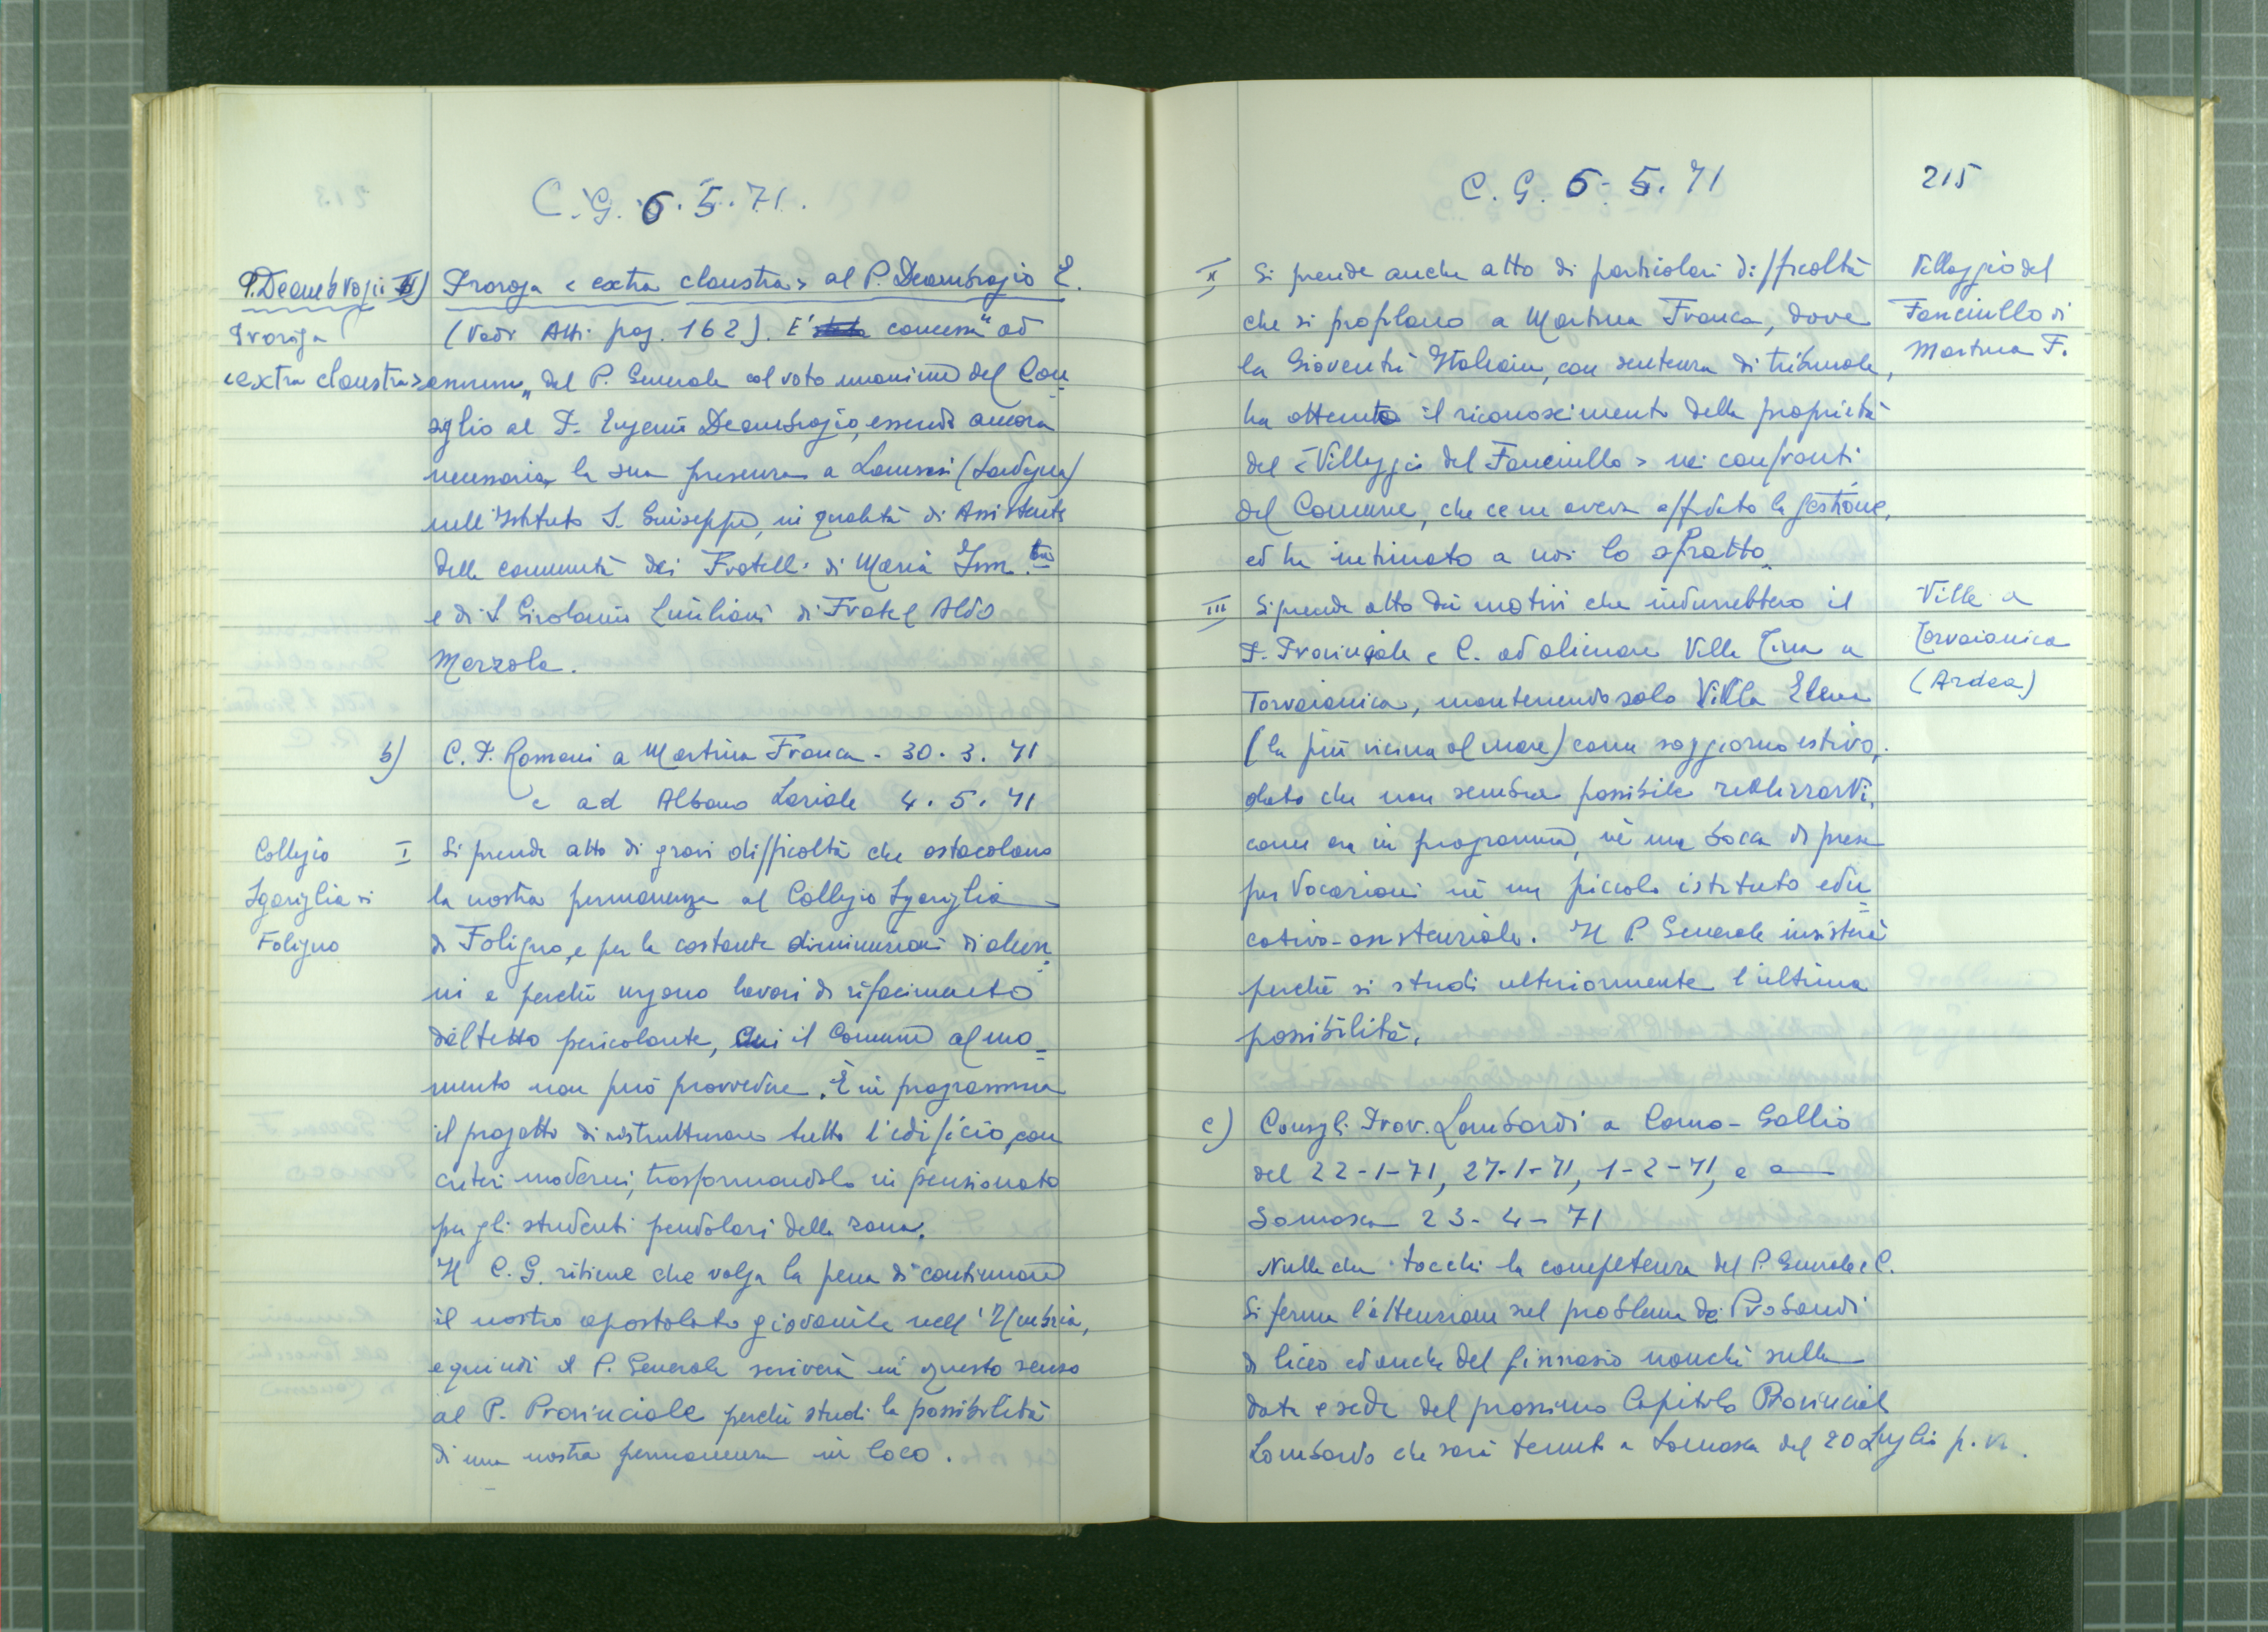 C.G. 6.5.71.
P. Deambrogio
Proroga
<extra claustra>
Proroga <extra claustra> al P. Deambrogio E.
(Vedi Atti pag. 162). E' stata concessa "ad
annum" dal P. Generale col voto unanime del Con=
siglio al P. Eugenio Deambrogio, essendo ancora
necessaria la sua presenza a Lanusei (Sardegna)
nell'Istituto S. Giuseppe, in qualità di Assistente
della comunità dei Fratelli di Maria Imm.ta
e di S. Girolamo Emiliani di Fratel Aldo
Marzola.
b) C. P. Romani a Martina Franca - 30.3.71
e ad Albano Laziale 4.5.71
Collegio
Sgariglia di
Foligno
I Si prende atto di gravi difficoltà che ostacolano
la nostra permanenza al Collegio Sgariglia
di Foligno, e per la costante diminuzioni di alun=
ni e perchè urgono lavori di rifacimento
del tetto pericolante, cui il Comune al mo=
mento non può provvedere. È in programma
il progetto di ristrutturare tutto l'edificio, con
criteri moderni, trasformandolo in pensionato
per gli studenti pendolari della zona.
Il C.G. ritiene che valga la pena di continuare
il nostro apostolato giovanile nell'Umbria,
e quindi il P. Generale scriverà in questo senso
al P. Provinciale perchè studi la possibilità
di una nostra permanenza in loco.
C.G. 6-5.71
215
Villaggio del
Fanciullo di
Martina F.
II Si prende anche atto di particolari difficoltà
che si profilano a Martina Franca, dove
la Gioventù Italiana, con sentenza di tribunale,
ha ottenuto il riconoscimento della proprietà
del <Villaggio del Fanciullo> nei confronti
del Comune, che ce ne aveva affidato la gestione,
ed ha intimato a noi lo sfratto.
Ville a
Torvaianica
(Ardea)
III Si prende atto dei motivi che indurrebbero il
P. Provinciale e C. ad alienare Villa Tina a
Torvaianica, mantenendo solo Villa Elena
(la più vicina al mare) come soggiorno estivo,
dato che non sembra possibile realizzarvi,
come era in programma, nè una bocca di presa
per Vocazioni nè un piccolo istituto edu=
cativo-assistenziale. Il P. Generale insisterà
perchè si studi ulteriormente l'ultima
possibilità.
c) Consigli Prov. Lombardi a Como-Gallio
del 22-1-71, 27-1-71, 1-2-71, e a
Somasca 23-4-71
Nulla che tocchi la competenza del P. Generale e C.
Si ferma l'attenzione sul problema dei Probandi
di liceo ed anche del ginnasio nonchè sulla
data e sede del prossimo Capitolo Provinciale
Lombardo che sarà tenuto a Somasca dal 20 Luglio p.v.